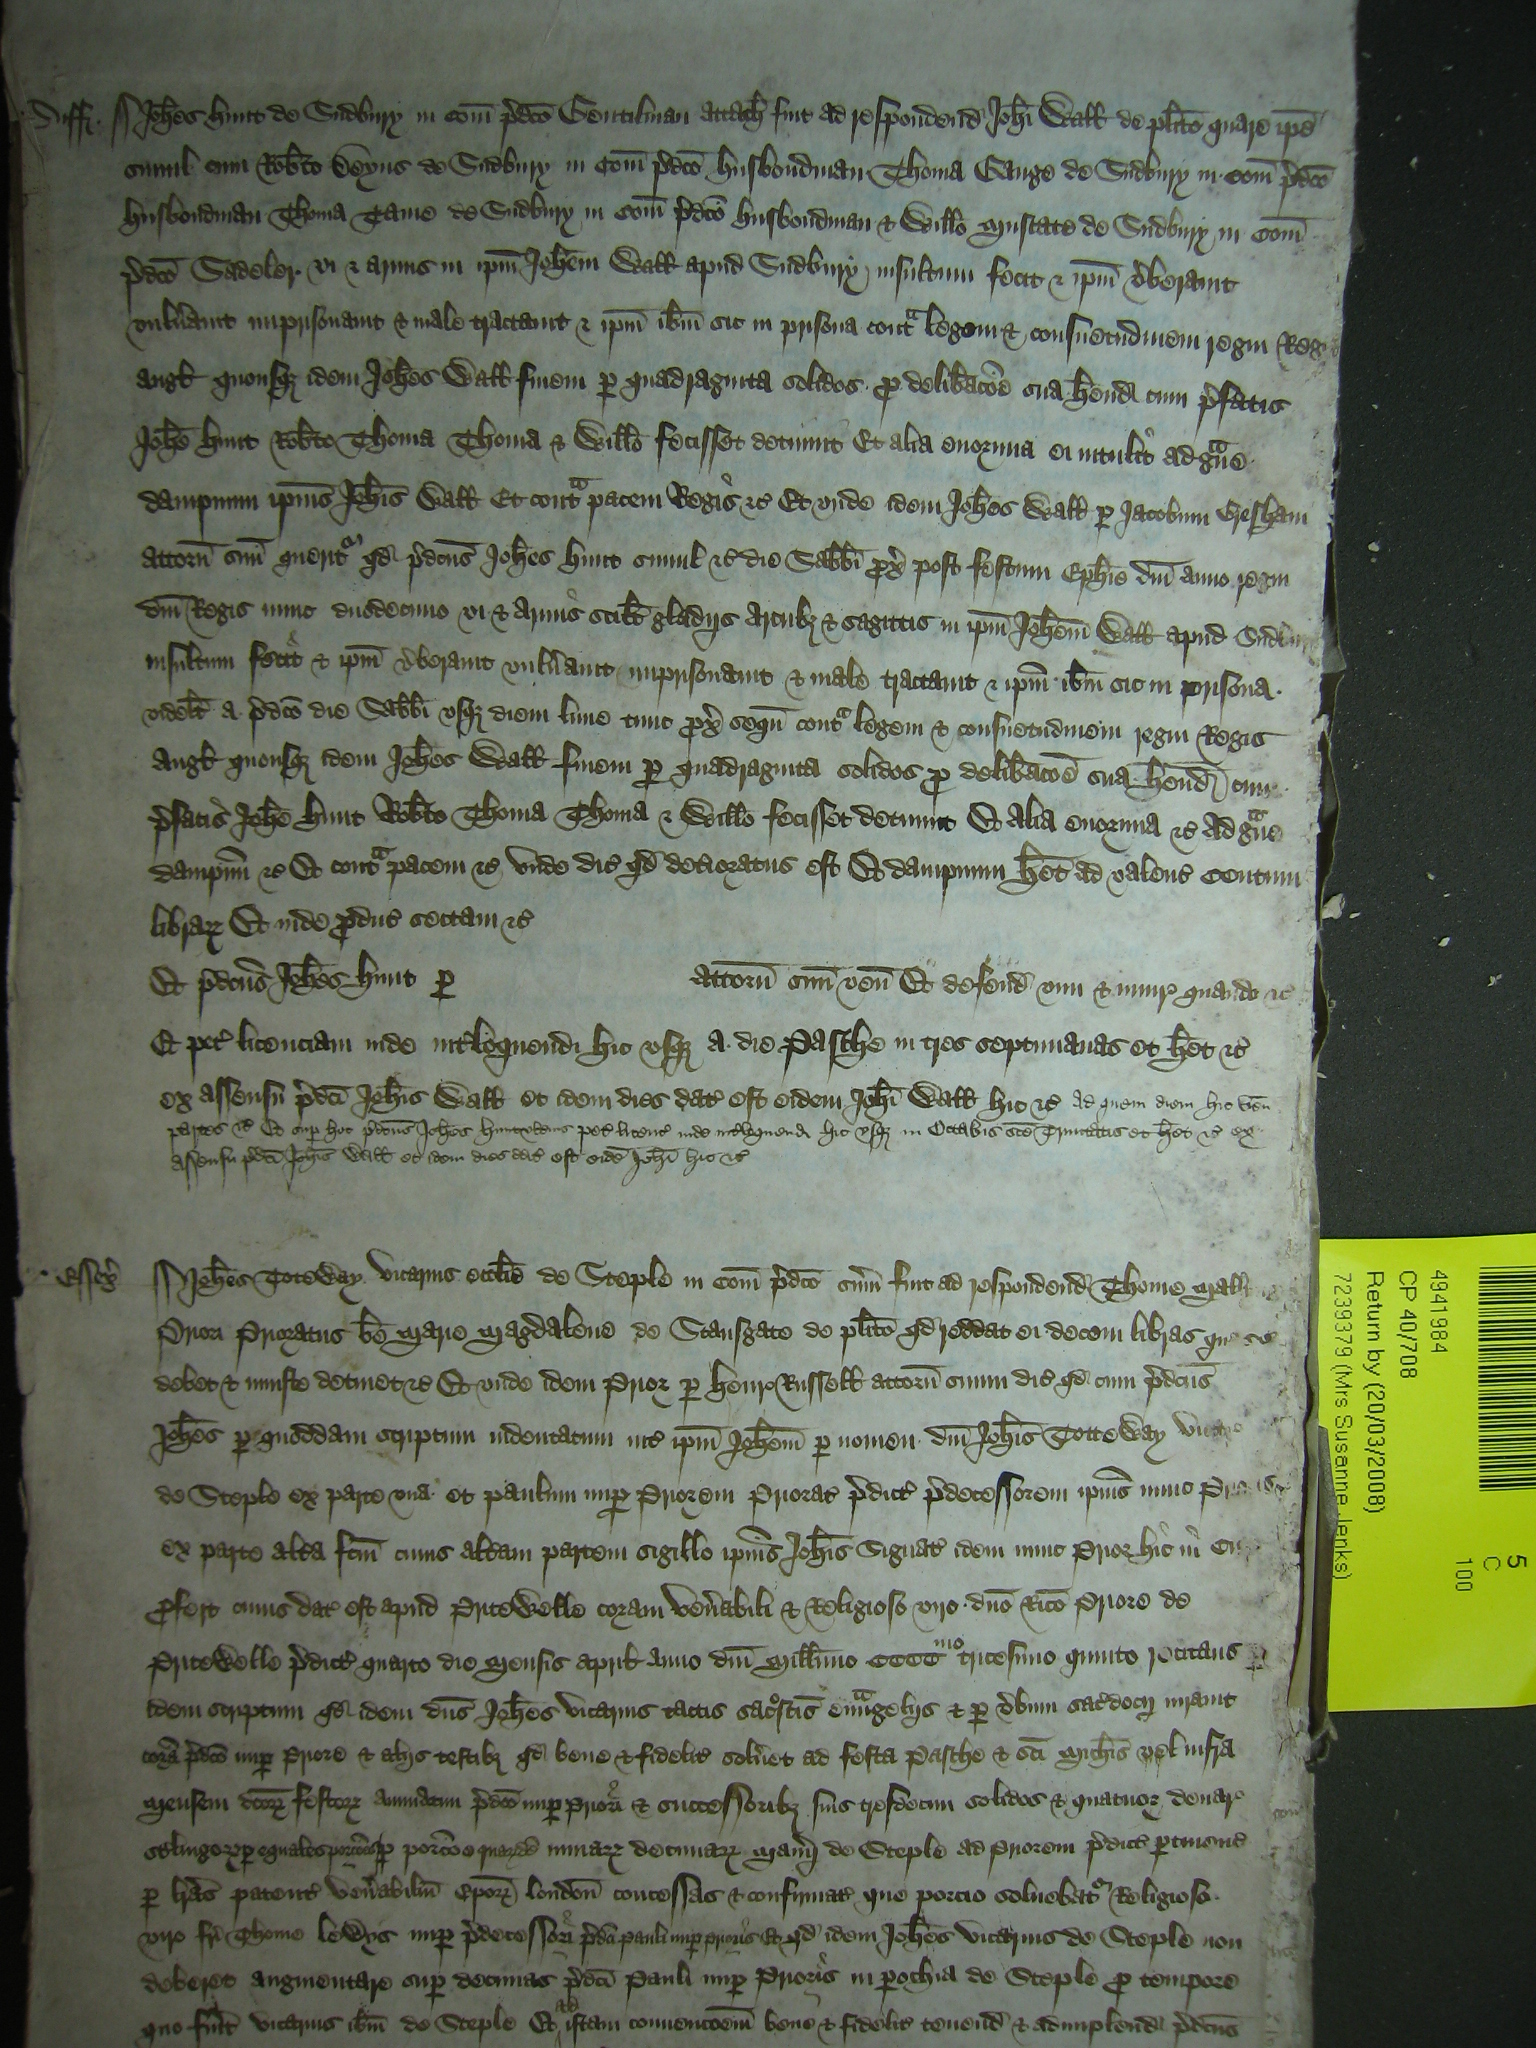 Suff.
Joh̄es Hunt de Sudbury in Com̄ p̄dc̄o Gentilman attach fuit ad respondend Joh̄i Wall de pl̄ito quare ip̄e
simul cum Rob̄to Deyns de Sudbury in Com̄ p̄dc̄o husbondman Thoma Gauge de Sudbury in Com̄ p̄dc̄o
husbondman Thoma Tame de Sudbury in Com̄ p̄dc̄o husbondman & Will̄o Mustate de Sudbury in Com̄
p̄dc̄o Sadeler vi & armis in ip̄m Joh̄em Wall apud Sudbury insultum fecit & ip̄m v̄beravit
vuln̄avit imprisonavit & male tractavit & ip̄m ib̄m sic in prisona cont̄a legem & consuetudinem regni Regis
Angl quousq idem Joh̄es Wall finem p quadraginta solidos pro delib̄acōe sua h̄end cum p̄fatis
Joh̄e Hunt Rob̄to Thoma Thoma & Will̄o fecisset detinuit Et alia enormia ei intulit ad g̊ve
dampnum ip̄ius Joh̄is Wall Et cont̄a pacem Regis &c̄ Et unde idem Joh̄es Wall p Jacobum Gresham
attorn̄ suū querit qd p̄dcūs Joh̄es Hunt simul &c̄ die Sabb̄i px̄ post festum Eph̄ie Dn̄i anno regni
dn̄i Regis nunc duodecimo vi & armis scilt gladijs arcubz & sagittis in ip̄m Joh̄em Wall apud Sudbury
insultum fecit & ip̄m v̄beravit vuln̄avit imprisonavit & male tractavit & ip̄m ib̄m sic in prisona
videlt a p̄dc̄o die Sabb̄i usq diem lune tunc px̄ seqū cont̄a legem & consuetudinem regni Regis
Angl quousq idem Joh̄es Wall finem p quadraginta solidos pro delib̄acōe sua h̄end cum
p̄fatis Joh̄e Hunt Rob̄to Thoma Thoma & Will̄o fecisset detinuit Et alia enormia &c̄ Ad g̊ve
dampnū &c̄ Et cont̄a pacem &c̄ Unde dic̄ qd deterioratus est Et dampnum h̄et ad valenc̄ Centum
librarz Et inde produc̄ sectam &c̄
Et p̄dcūs Joh̄es Hunt p attorn̄ suū ven̄ Et defend vim & iniur quando &c̄
Et pet̄ licenciam inde int̄loquendi hic usq a die Pasche in tres septimanas et h̄et &c̄
ex assensu p̄dc̄i Joh̄is Wall et idem dies dat̄ est eidem Joh̄i Wall hic &c̄ Ad quem diem hic ven̄
partes &c̄ Et sup hoc p̄dcūs Joh̄es Hunt ulterius pet̄ licenc̄ inde int̄loquendi hic usq in Octabis sc̄e Trinitatis et h̄et &c̄ ex
assensu p̄dc̄i Joh̄is Wall et idem dies dat̄ est eid̄ Joh̄i hic &c̄
Essex
Joh̄es Toteway vicarius eccl̄ie de Steple in Com̄ p̄dc̄o sum̄ fuit ad respondend Thome Mall
Priori Prioratus b̄e Marie Magdalene de Stansgate de pl̄ito qd reddat ei decem libras que ei
debet & iniuste detinet &c̄ Et unde idem Prior p Henr Russell attorn̄ suum dic̄ qd cum p̄dcūs
Joh̄es p quoddam scriptum indentatum int̄ ip̄m Joh̄em p nomen dn̄i Joh̄is Totteway vicar
de Steple ex parte una et Paulum nup Priorem Priorat̄ p̄dict̄ p̄decessorem ip̄ius nunc Prioris
ex parte alt̄a fc̄m cuius alt̄am partem sigillo ip̄ius Joh̄is Signat̄ idem nunc Prior hic in Cur
profert cuius dat̄ est apud Pritewelle coram ven̄abili & Religioso viro dn̄o Ric̄o Priore de
Pritewelle p̄dict̄ quarto die Mensis April Anno dn̄i Mill̄imo CCCC mo tricesimo quinto recitans p
idem scriptum qd idem dn̄s Joh̄es vicarius tactis sacros̄tis ev̄ngelijs & p v̄bum sac̄docij iuravit
corā p̄dc̄o nup Priore & alijs testibz qd bene & fidelit̄ solv̄et ad festa Pasche & sc̄i Mich̄is vel infra
Mensem dc̄orz festorz annuatim p̄dc̄o nup Priori & successoribz suis tresdecim solidos & quatuor denar
st̄lingorz p equales porcōes p porcōe quarundā minarz decimarz Man̄ij de Steple ad Priorem p̄dict̄ ptinent̄
p l̄ras patent̄ ven̄abiliū Ep̄orz London̄ concessas & confirmat̄ que porcio solvebat̄ Religioso
viro fr̄i Thome Lewys nup p̄decessori p̄dc̄i Pauli nup prioris Et qd idem Joh̄es vicarius de Steple non
deberet augmentare sup decimas p̄dc̄i Pauli nup Prioris in pochia de Steple pro tempore
quo fuit vicarius ib̄m de Steple Et ad istam convencōem bene & fidelit̄ tenend & adimplend p̄dcūs
4941984
CP 40/708
Return by (20/03/2008)
7239379 (Mrs Susanne Jenks)
5
C
100